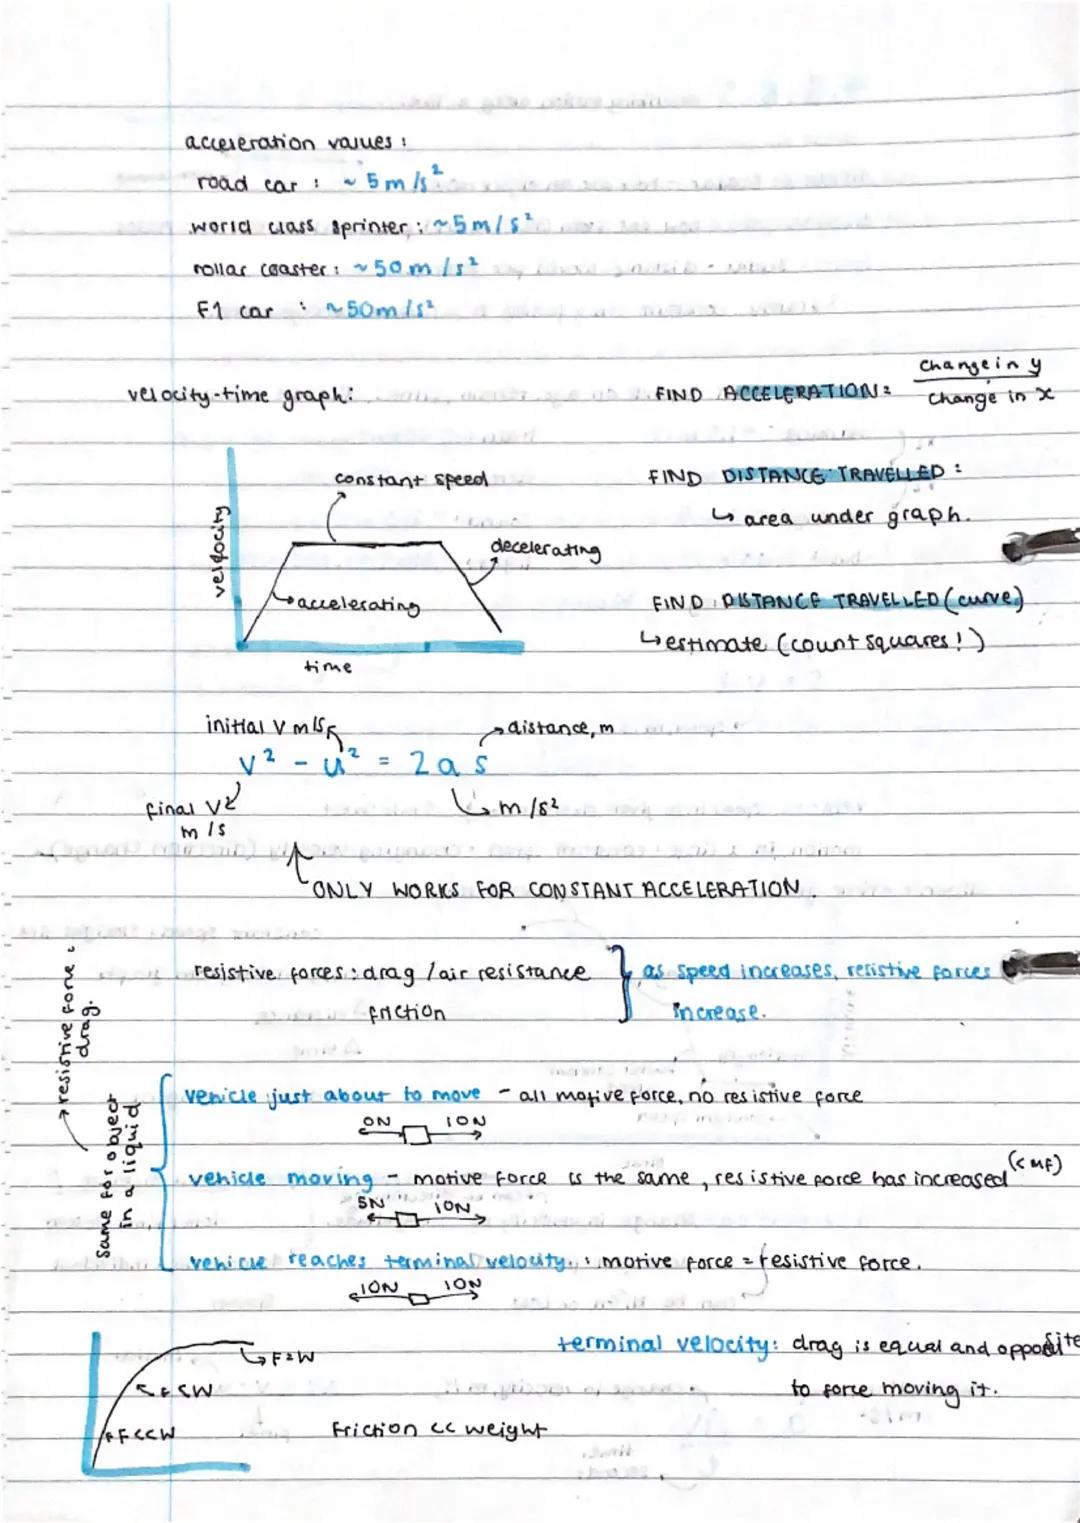 acceleration values :
road car : ~ 5 m/s²
world class sprinter : ~5m/s²
rollar coaster : ~50 m/s²
F1 car : ~50m/s²
velocity-time graph:
FIND ACCELERATION = change in y
change in x
constant speed
FIND DISTANCE TRAVELLED :
↳ area under graph.
velocity
decelerating
accelerating
FIND DISTANCE TRAVELLED (curve)
↳ estimate (count squares!)
time
initial V m/s
distance, m
v² - u² = 2as
final V
m/s
m/s²
ONLY WORKS FOR CONSTANT ACCELERATION.
resistive forces : drag / air resistance
friction
as speed increases, resistive forces
increase.
resistive force =
drag.
same for object
in a liquid
vehicle just about to move - all motive force, no resistive force
0N 10N
vehicle moving - motive force is the same, resistive force has increased (< MF)
5N 10N
vehicle reaches terminal velocity : motive force = resistive force.
10N 10N
F=W
F<W
F<<W
Friction << weight
terminal velocity: drag is equal and opposite
to force moving it.